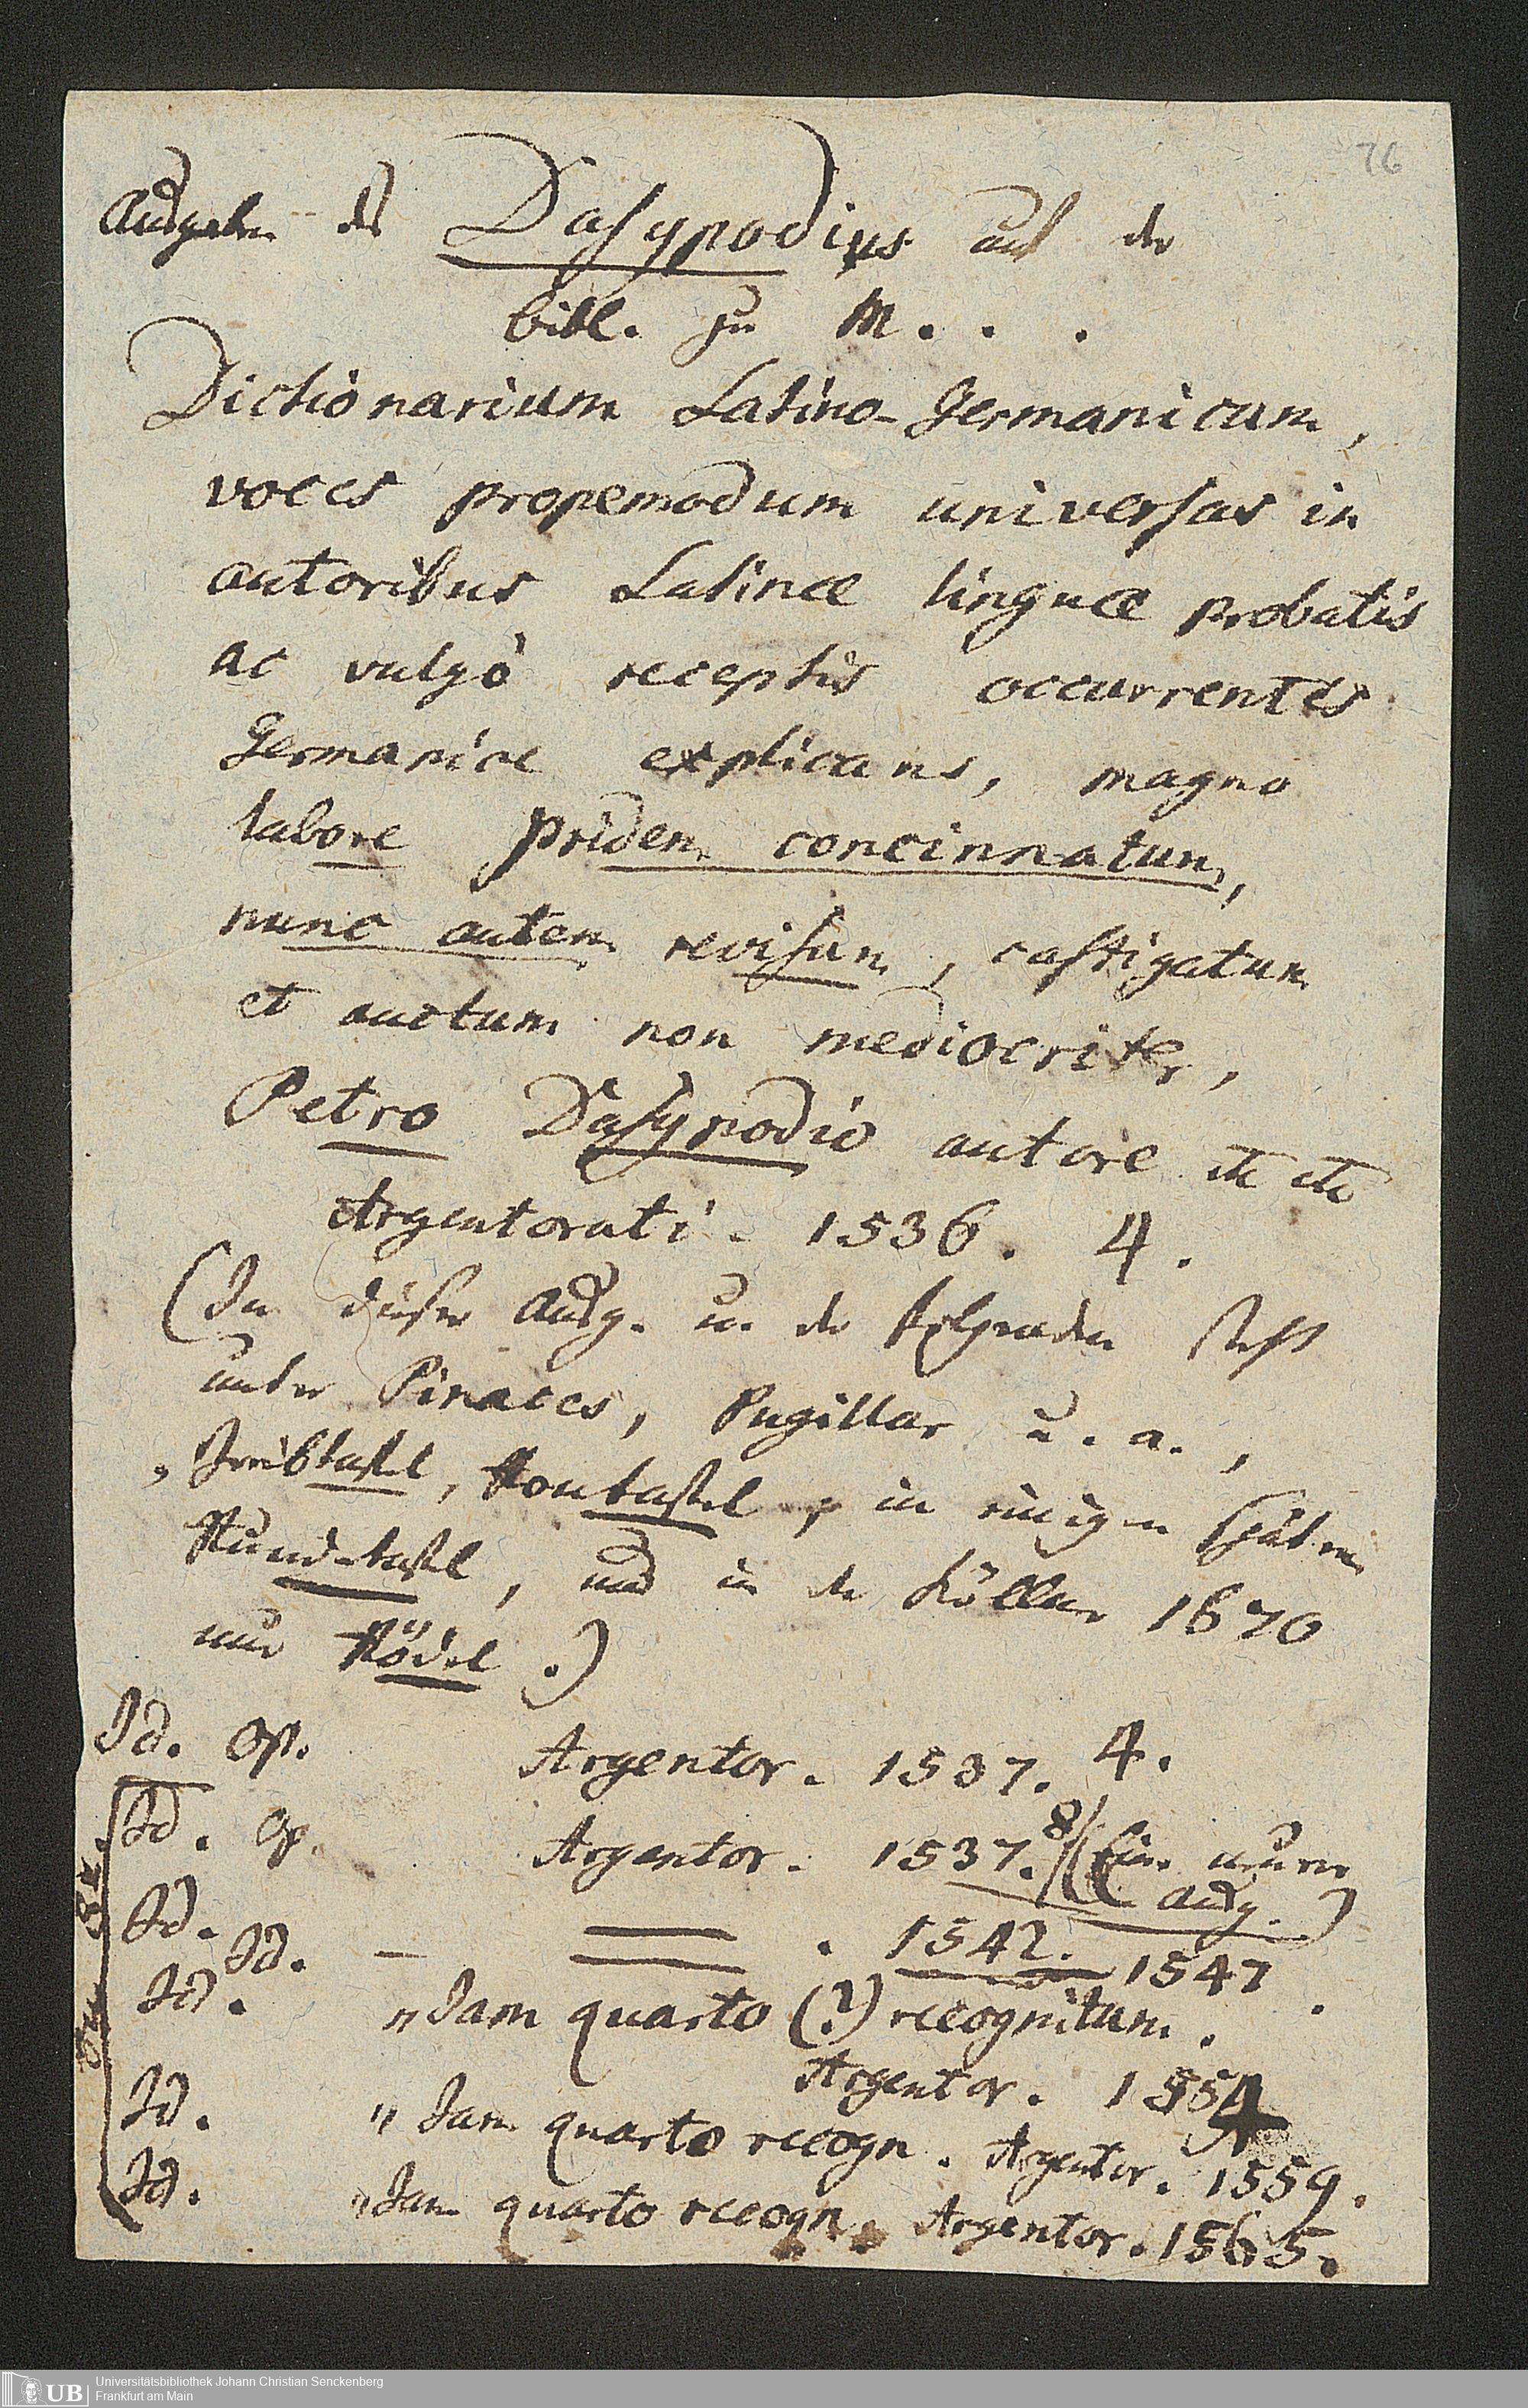 76
Ausgaben des Dasypodius auf der
Bibl. zu M. . .
Dictionarium Latino-Germanicum,
voces propemodum universas in
autoribus Latinæ linguæ probatis
ac vulgò receptis occurrentes
Germanice explicans, magno
labore pridem concinnatum,
nunc autem revisum, castigatum
et auctum non mediocriter,
Petro Dasypodio autore etc etc
Argentorati. 1536. 4.
(In dieser Ausg. u. der folgenden steht
unter Pinaces, Pugillar u. a.,
„Schreibtafel, in einigen spätern
und in der Köllner 1670
nur Rödel.)
Id. op. Argentor. 1537. 4.
Id. op. Argentor. 1537. 8 (Eine neuere
Ausg.)
Id. . 1542.
Id. — 1547.
Id. „Jam quarto (?) recognitum.
Argentor. 1554
Id. „Jam quarto recogn. Argentor. 1559.
Id. „Jam quarto recogn. Argentor. 1565.
In 8º.
Universitätsbibliothek Johann Christian Senckenberg
Frankfurt am Main
UB